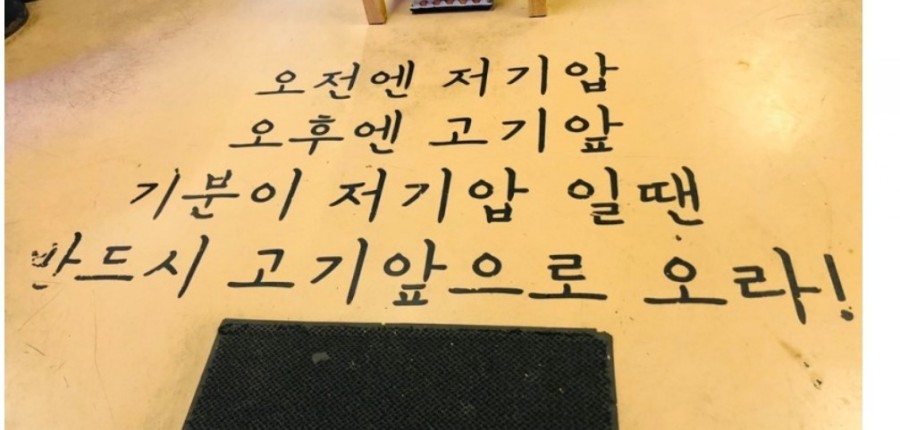 오전엔 저기압
오후엔 고기앞
기분이 저기압 일땐
반드시 고기앞으로 오라!